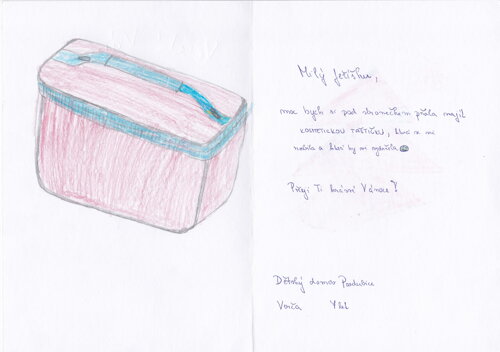 Milý Ježíšku,
moc bych si pod stromečkem přála najít
KOSMETICKOU TAŠTIČKU, která se mi
líbila a která by mi vydržela
Přeji Ti krásné Vánoce?
Dětský domov Pardubice
let